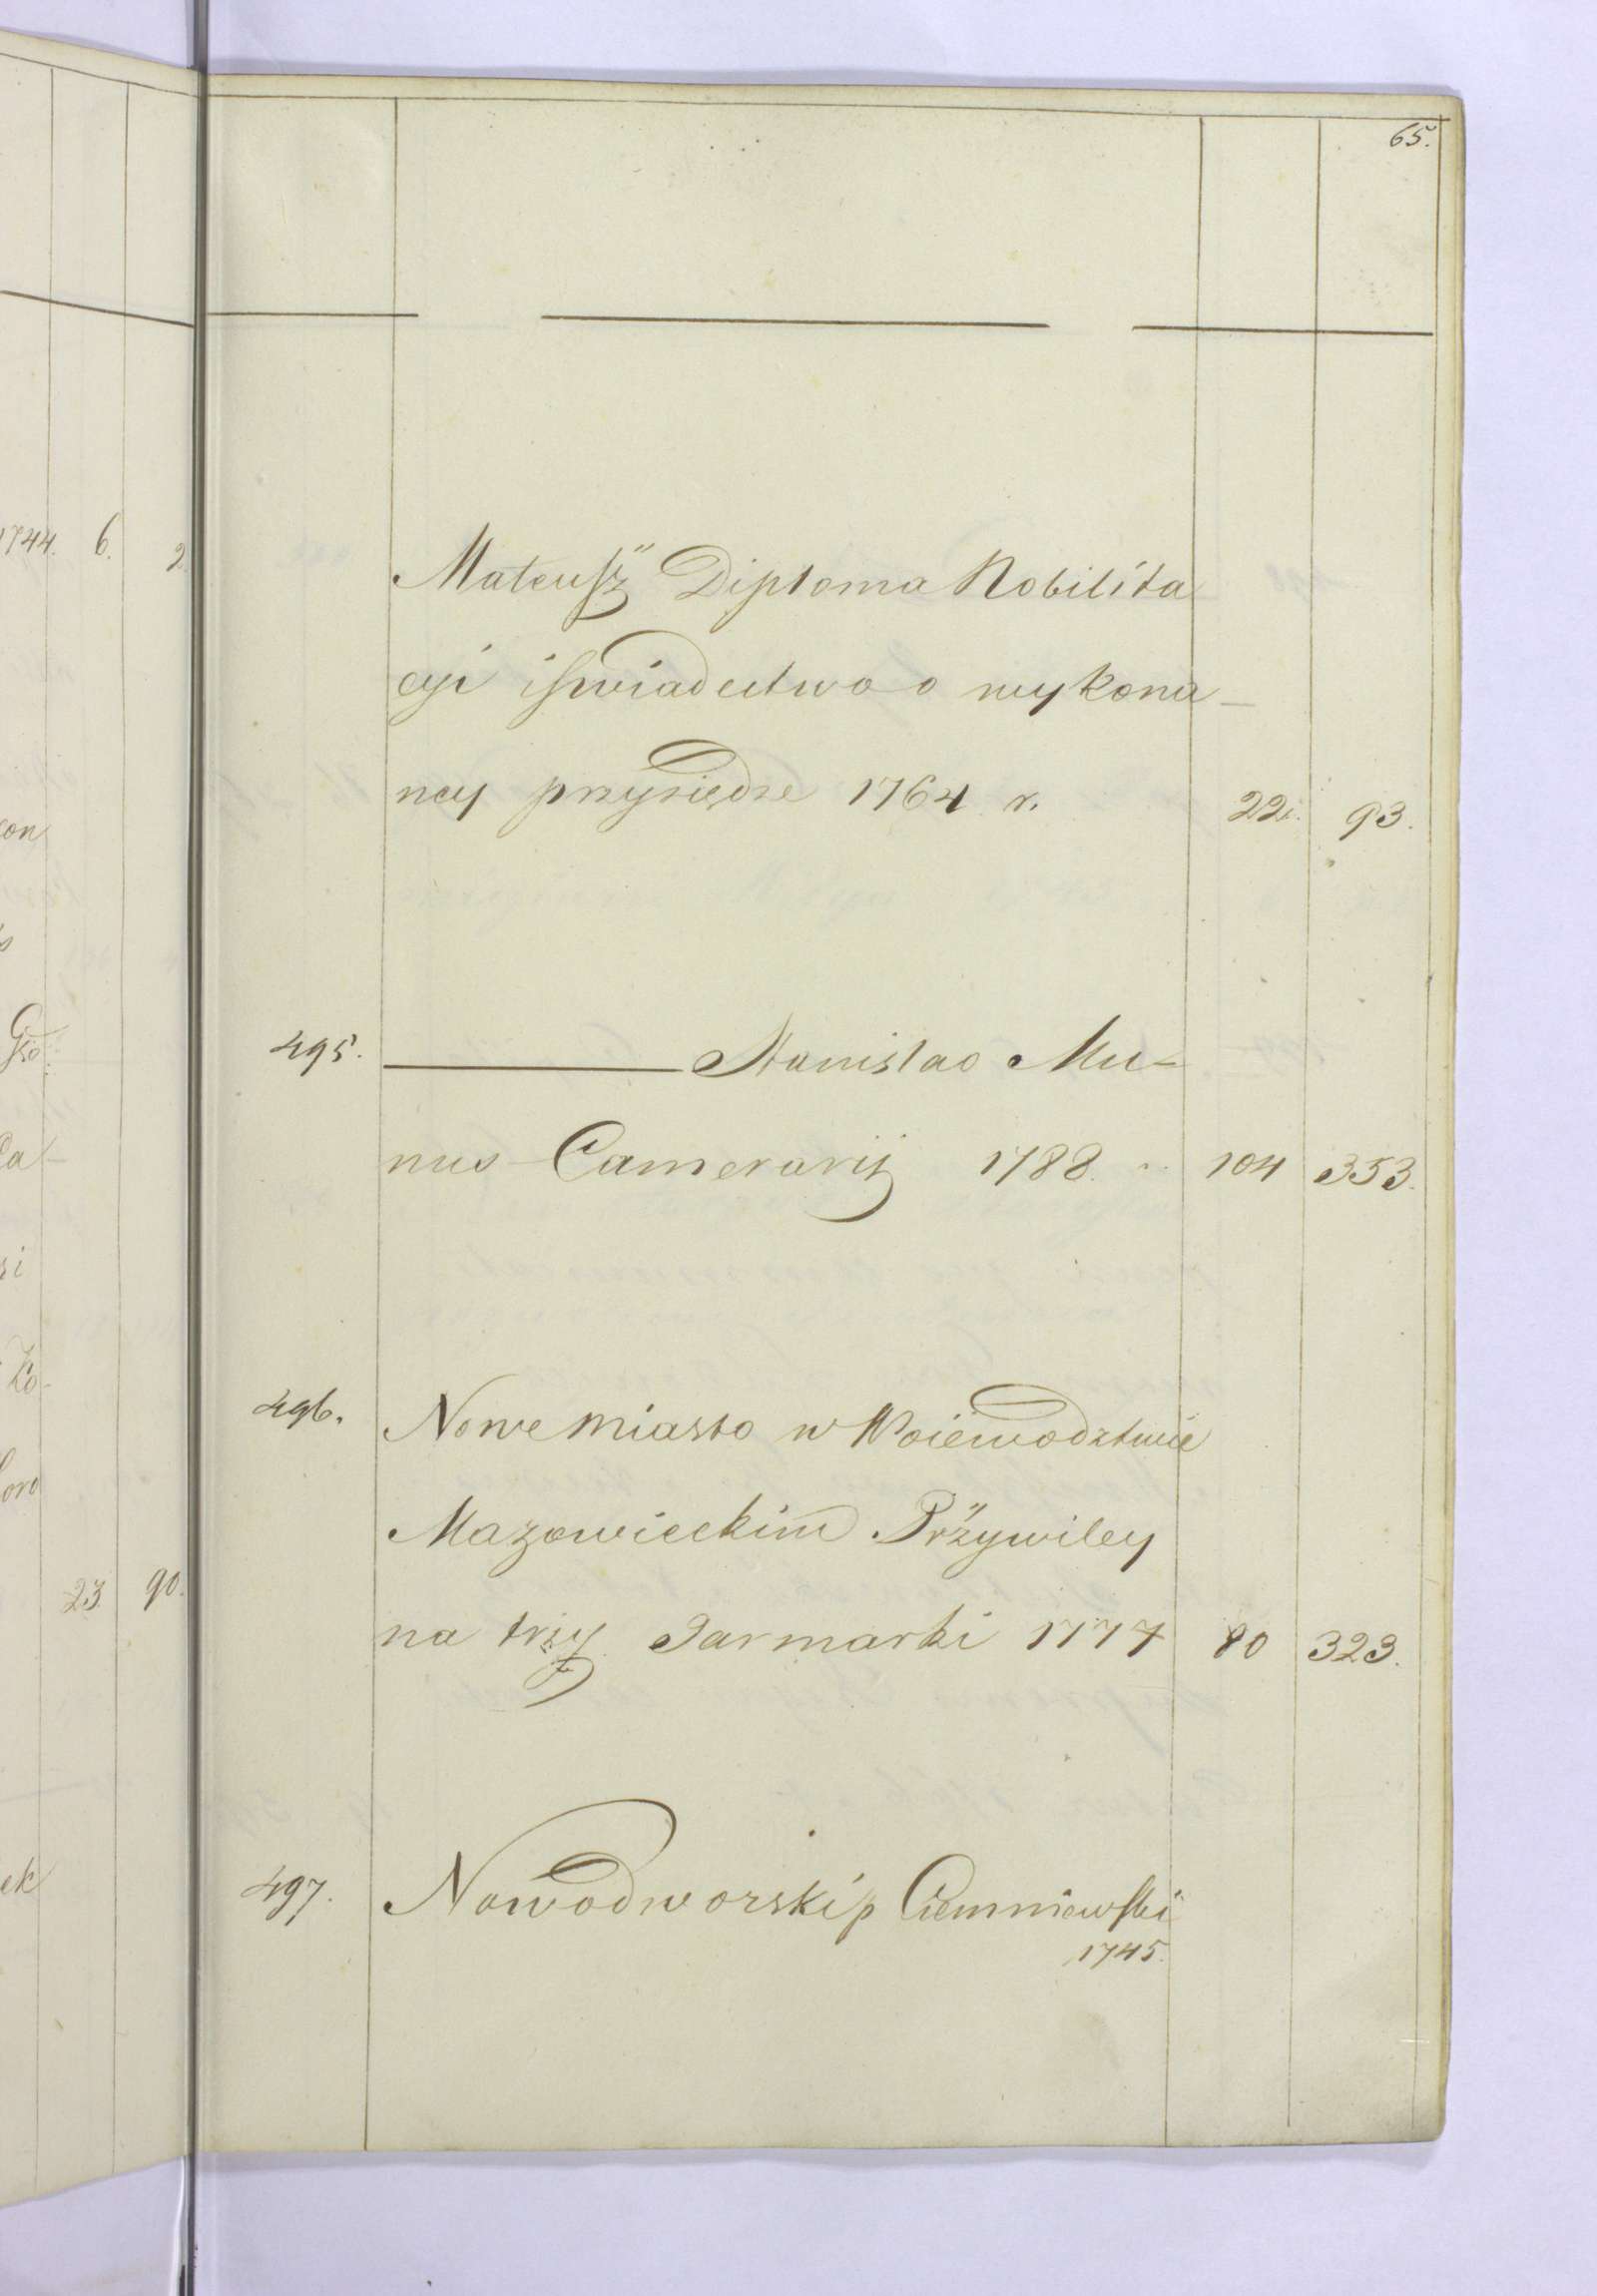 65.
1744. 6. 2.
Mateusz Diploma Nobilita
cyi iswiadectwo o wykona-
ney przysiędze 1764 r. 22. 93.
495. ——— Stanislao Mu-
nus Camerarij 1788. 104 353.
496. Nowe Miasto w Woiewodztwie
Mazowieckim Przywiley
na trzy Jarmarki 1777 80 323.
23. 90.
497. Nowodworski p Ciemniewski
1745.